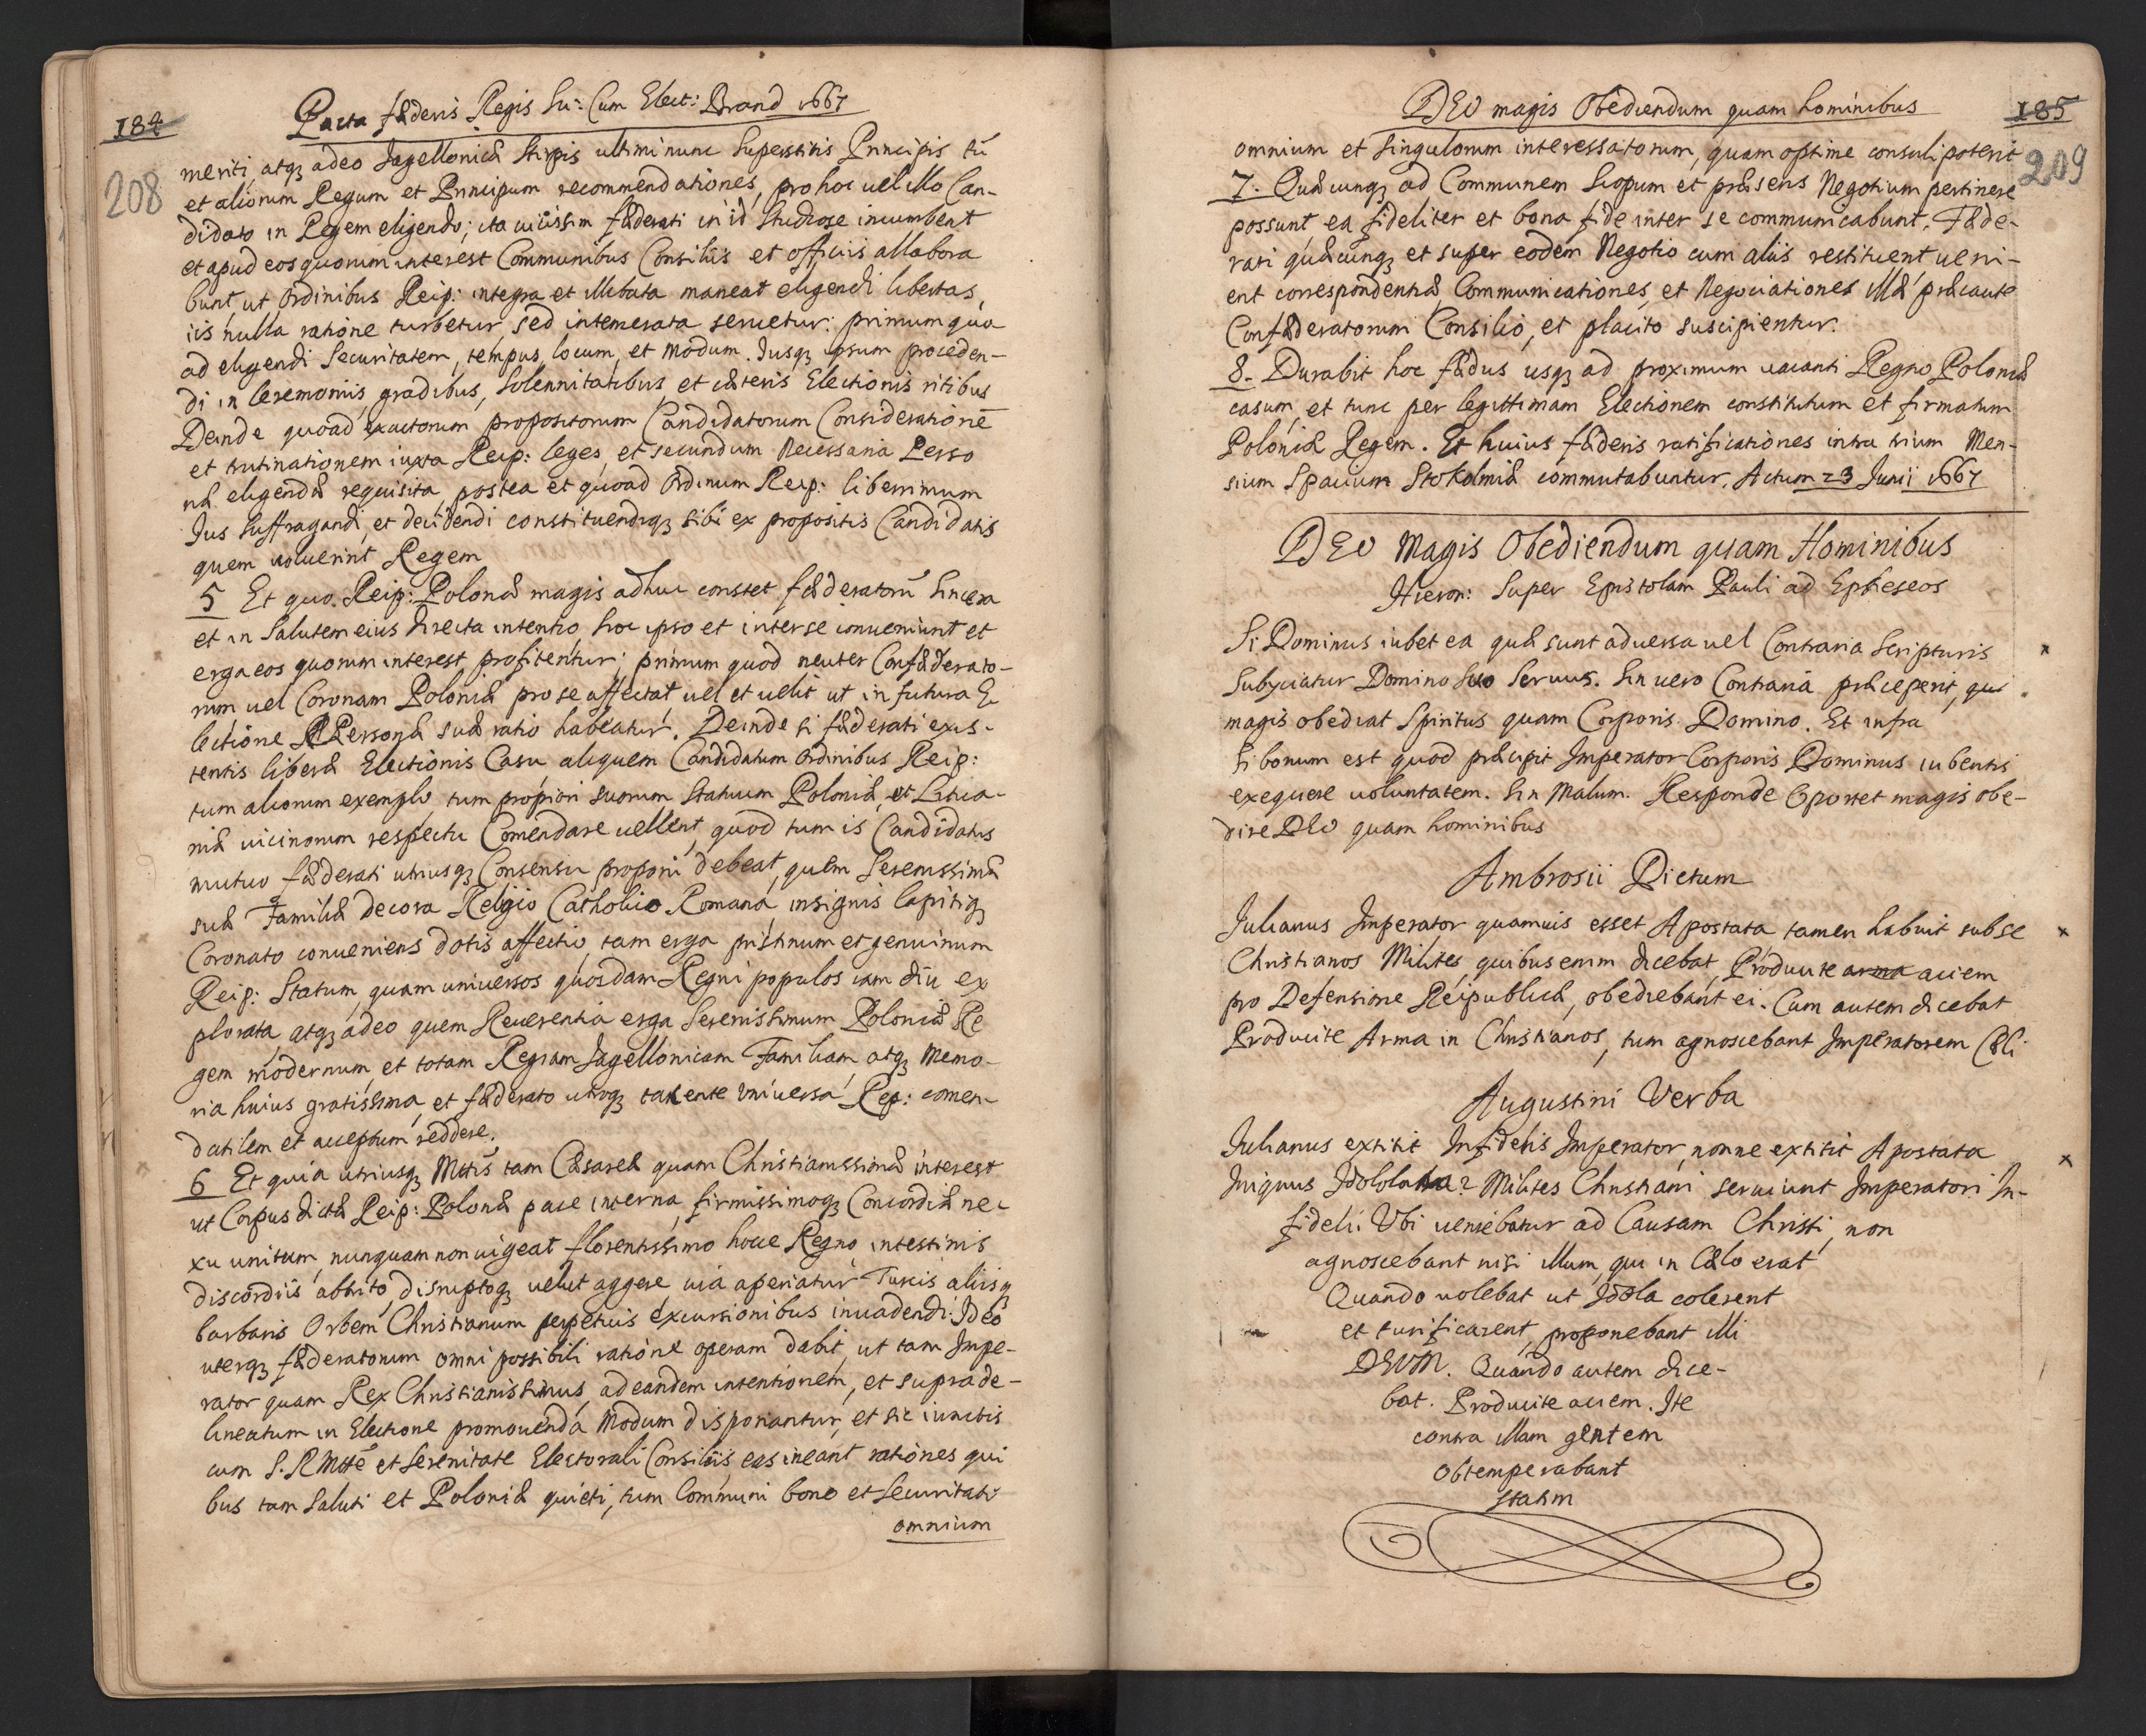 184
208
Pacta fæderis Regis Su: Cum Elect: Brand 1667
meriti, atqꝫ adeo Jagellonicæ Stirpis ultimi nunc Superstitis Principis tū
et aliorum Regum et Principum recommendationes, pro hoc uel illo Can-
didato in Regem eligendo; ita uicissim fæderati in id Studiose incumbent
et apud eos quorum interest Communibus Consiliis et officiis allabora
bunt, ut Ordinibus Reip: integra et illibata maneat eligendi libertas,
iis nulla ratione turbetur sed intemerata seruetur: primum quo
ad eligendi Securitatem, tempus, locum, et modum. Jusqꝫ ipsum proceden-
di in Ceremoniis, gradibus, Solennitatibus et cæteris Electionis ritibus
Deinde quoad exactorum propositorum Candidatorum Consideratione
et trutinationem iuxta Reip: leges, et secundum Necessaria Perso
næ eligendæ requisita, postea et quoad Ordinum Reip: liberrimum
Jus Suffragandi, et decidendi constituendiqꝫ sibi ex propositis Candidatis
quem uoluerint Regem
5 Et quo Reip: Polonæ magis adhuc constet fæderatorū Sincera
et in Salutem eius directa intentio, hoc ipso et inter se conueniunt et
erga eos quorum interest, profitentur; primum quod neuter Confæderato-
rum uel Coronam Poloniæ pro se affectat, uel et uelit ut in futura E
lectione Personæ suæ ratio habeatur. Deinde si fæderati exis-
tentis liberæ Electionis Casu aliquem Candidatum Ordinibus Reip:
tum aliorum exemplo, tum propiori suorum Statuum Poloniæ, et Litua-
niæ uicinorum respectu Comendare uellent, quod tum is Candidatus
mutuo fæderati utriusqꝫ Consensu proponi debeat, quem Serenissimæ
suæ Familiæ decora Religio Catholico Romana, insignis Capitiqꝫ
Coronato conueniens dotis affectio, tam erga pristinum et genuinum
Reip: Statum, quam uniuersos quosdam Regni populos iam diu ex
plorata, atqꝫ adeo quem Reuerentia erga Serenissimum Poloniæ Re
gem modernum, et totam Regiam Jagellonicam Familiam, atqꝫ Memo-
ria huius gratissima, et fæderato utroqꝫ tacente Vniuersa Reip: comen-
datilem et acceptum reddere.
6 Et quia utriusqꝫ Mttis tam Cæsareæ quam Christianissimæ interest
ut Corpus dictæ Reip: Polonæ pace interna, firmissimoqꝫ Concordiæ ne-
xu unitum, nunquam non uigeat florentissimo hocce Regno, intestinis
discordiis attrito, disruptoqꝫ uelut aggere, uia aperiatur Turcis aliisqꝫ
barbaris Orbem Christianum perpetuis excursionibus inuadendi: Ideo
uterqꝫ fæderatorum omni possibili ratione operam dabit, ut tam Impe-
rator quam Rex Christianissimus, ad eandem intentionem, et supra de-
lineatum in Electione promouenda Modum disponantur, et sic iunctis
cum S. R Mtte et Serenitate Electorali Consiliis, eas ineant rationes qui
bus tam Saluti et Poloniæ quieti, tum Communi bono et Securitati
omnium
DEO magis Obediendum quam hominibus
185
209
omnium et Singulorum interessatorum, quam optime consuli poterit
7. Quæcunqꝫ ad Communem Scopum et præsens Negotium pertinere
possunt ea fideliter et bona fide inter se communicabunt. Fæde-
rati quæcunqꝫ et super eodem Negotio cum aliis restituent ueni-
ent correspondentiæ, Communicationes, et Negociationes illæ præcaute
Confæderatorum Consilio, et placito suscipientur.
8. Durabit hoc fædus usqꝫ ad proximum uacanti Regno Poloniæ
casum, et tunc per legittimam Electionem constitutum et firmatum
Poloniæ Regem. Et huius fæderis ratificationes intra trium Men-
sium Spacium Stokolmiæ commutabuntur. Actum 23 Junii 1667
DEO Magis Obediendum quam Hominibus
Hieron: Super Epistolam Pauli ad Epheseos
Si Dominus iubet ea quæ sunt aduersa uel Contraria Scripturis
Subyciatur Domino suo Seruus. Sin uero Contraria præceperit, qui
magis obediat Spiritus quam Corporis Domino. Et infra
Si bonum est quod præcipit Imperator Corporis Dominus iubentis
exequere uoluntatem. Sin Malum. Responde Oportet magis obe-
dire DEO quam hominibus
Ambrosii Dictum
Julianus Imperator quamuis esset Apostata tamen habuit sub se
Christianos Milites, quibus enim dicebat, Producite arma aciem
pro Defensione Reipublicæ, obediebant ei. Cum autem dicebat
Producite Arma in Christianos, tum agnoscebant Imperatorem Cæli
Augustini Verba
Julianus extitit Infidelis Imperator, nonne extitit Apostata
Iniquus Idololatra? Milites Christiani seruiunt Imperatori In-
fideli. Vbi ueniebatur ad Causam Christi, non
agnoscebant nisi illum, qui in Cælo erat
Quando uolebat ut Idola colerent
et turificarent, proponebant illi
DEVM. Quando autem dice-
bat. Producite aciem. Ite
contra illam gentem
Obtemperabant
statim